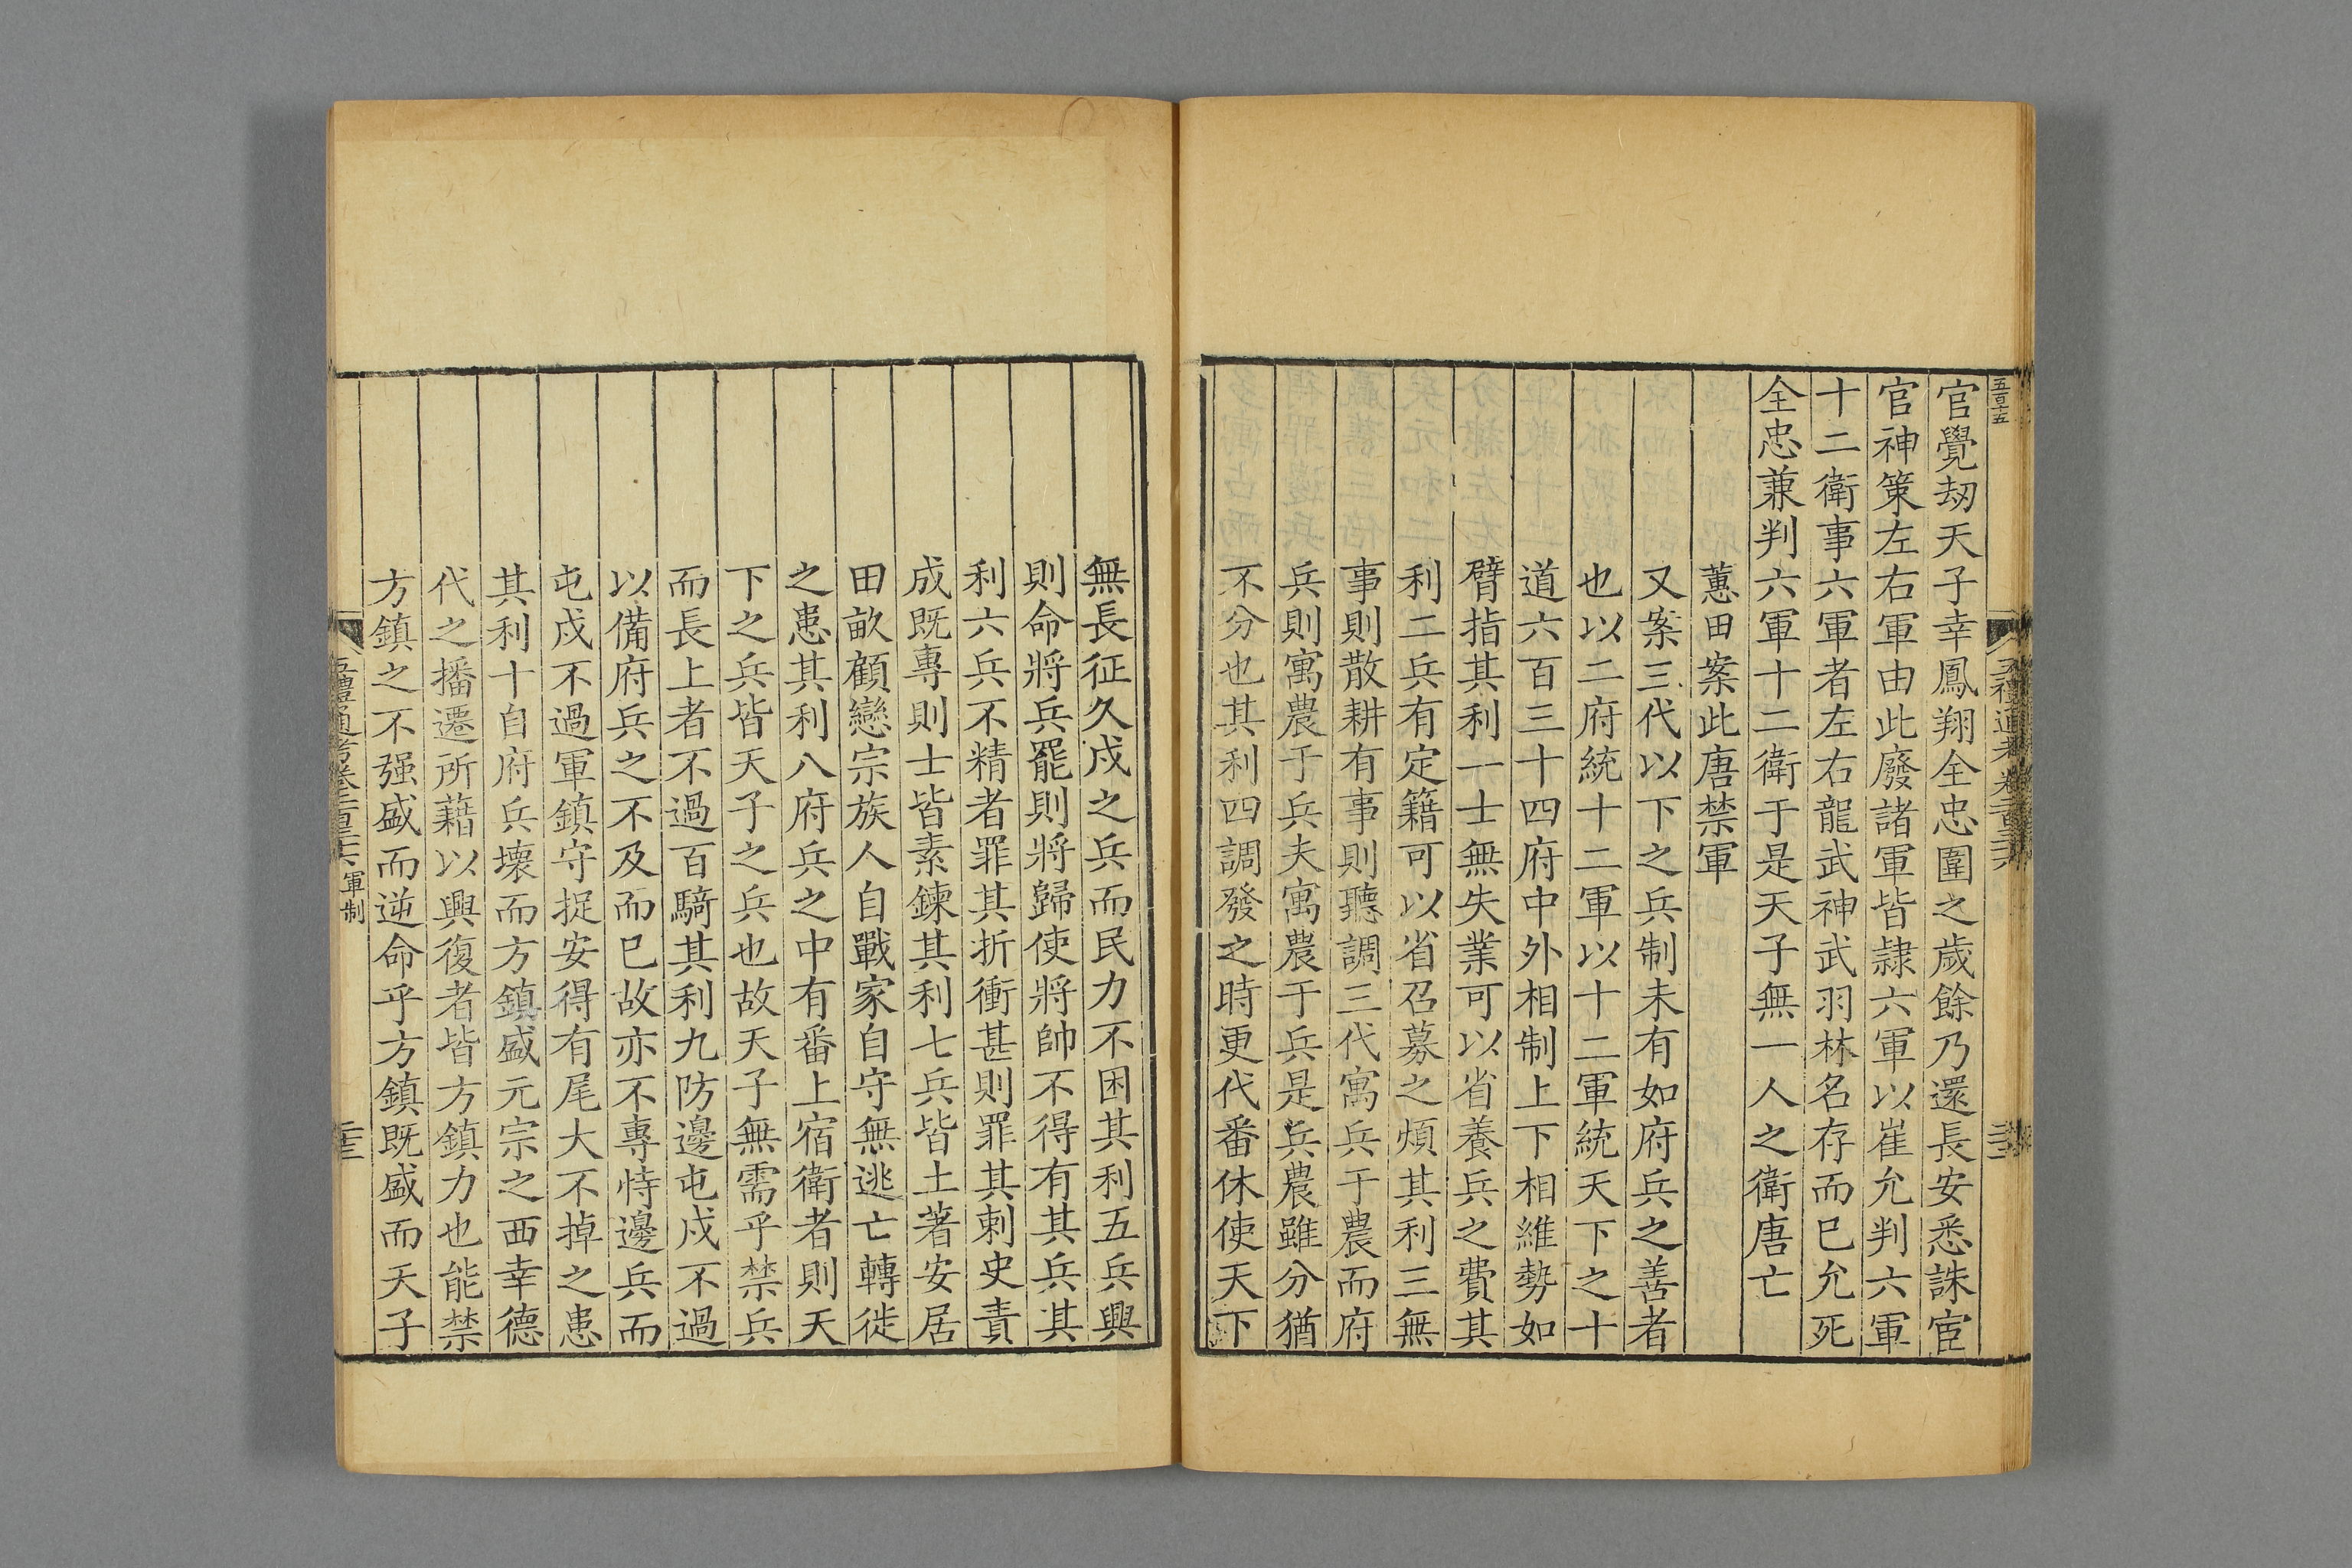 官覺刼天子幸鳳翔全忠圍之歲餘乃還長安悉誅宦
官神策左右軍由此廢諸軍皆隸六軍以崔允判六軍
十二衛事六軍者左右龍武神武羽林名存而已允死
全忠兼判六軍十二衛于是天子無一人之衛唐亡
蕙田案此唐禁軍
又案三代以下之兵制未有如府兵之善者
也以二府統十二軍以十二軍統天下之十
道六百三十四府中外相制上下相維勢如
臂指其利一士無失業可以省養兵之費其
利二兵有定籍可以省召募之煩其利三無
事則散耕有事則聽調三代寓兵于農而府
兵則寓農于兵夫寓農于兵是兵農雖分猶
不分也其利四調發之時更代番休使天下
無長征久戍之兵而民力不困其利五兵興
則命將兵罷則將歸使將帥不得有其兵其
利六兵不精者罪其折衝甚則罪其刺史責
成既專則士皆素鍊其利七兵皆土著安居
田畝顧戀宗族人自戰家自守無逃亡轉徙
之患其利八府兵之中有番上宿衛者則天
下之兵皆天子之兵也故天子無需乎禁兵
而長上者不過百騎其利九防邊屯戍不過
以備府兵之不及而已故亦不專恃邊兵而
屯戍不過軍鎮守捉安得有尾大不掉之患
其利十自府兵壞而方鎮盛元宗之西幸德
代之播遷所藉以興復者皆方鎮力也能禁
方鎮之不强盛而逆命乎方鎮既盛而天子
五禮通考卷二百三十六 軍制